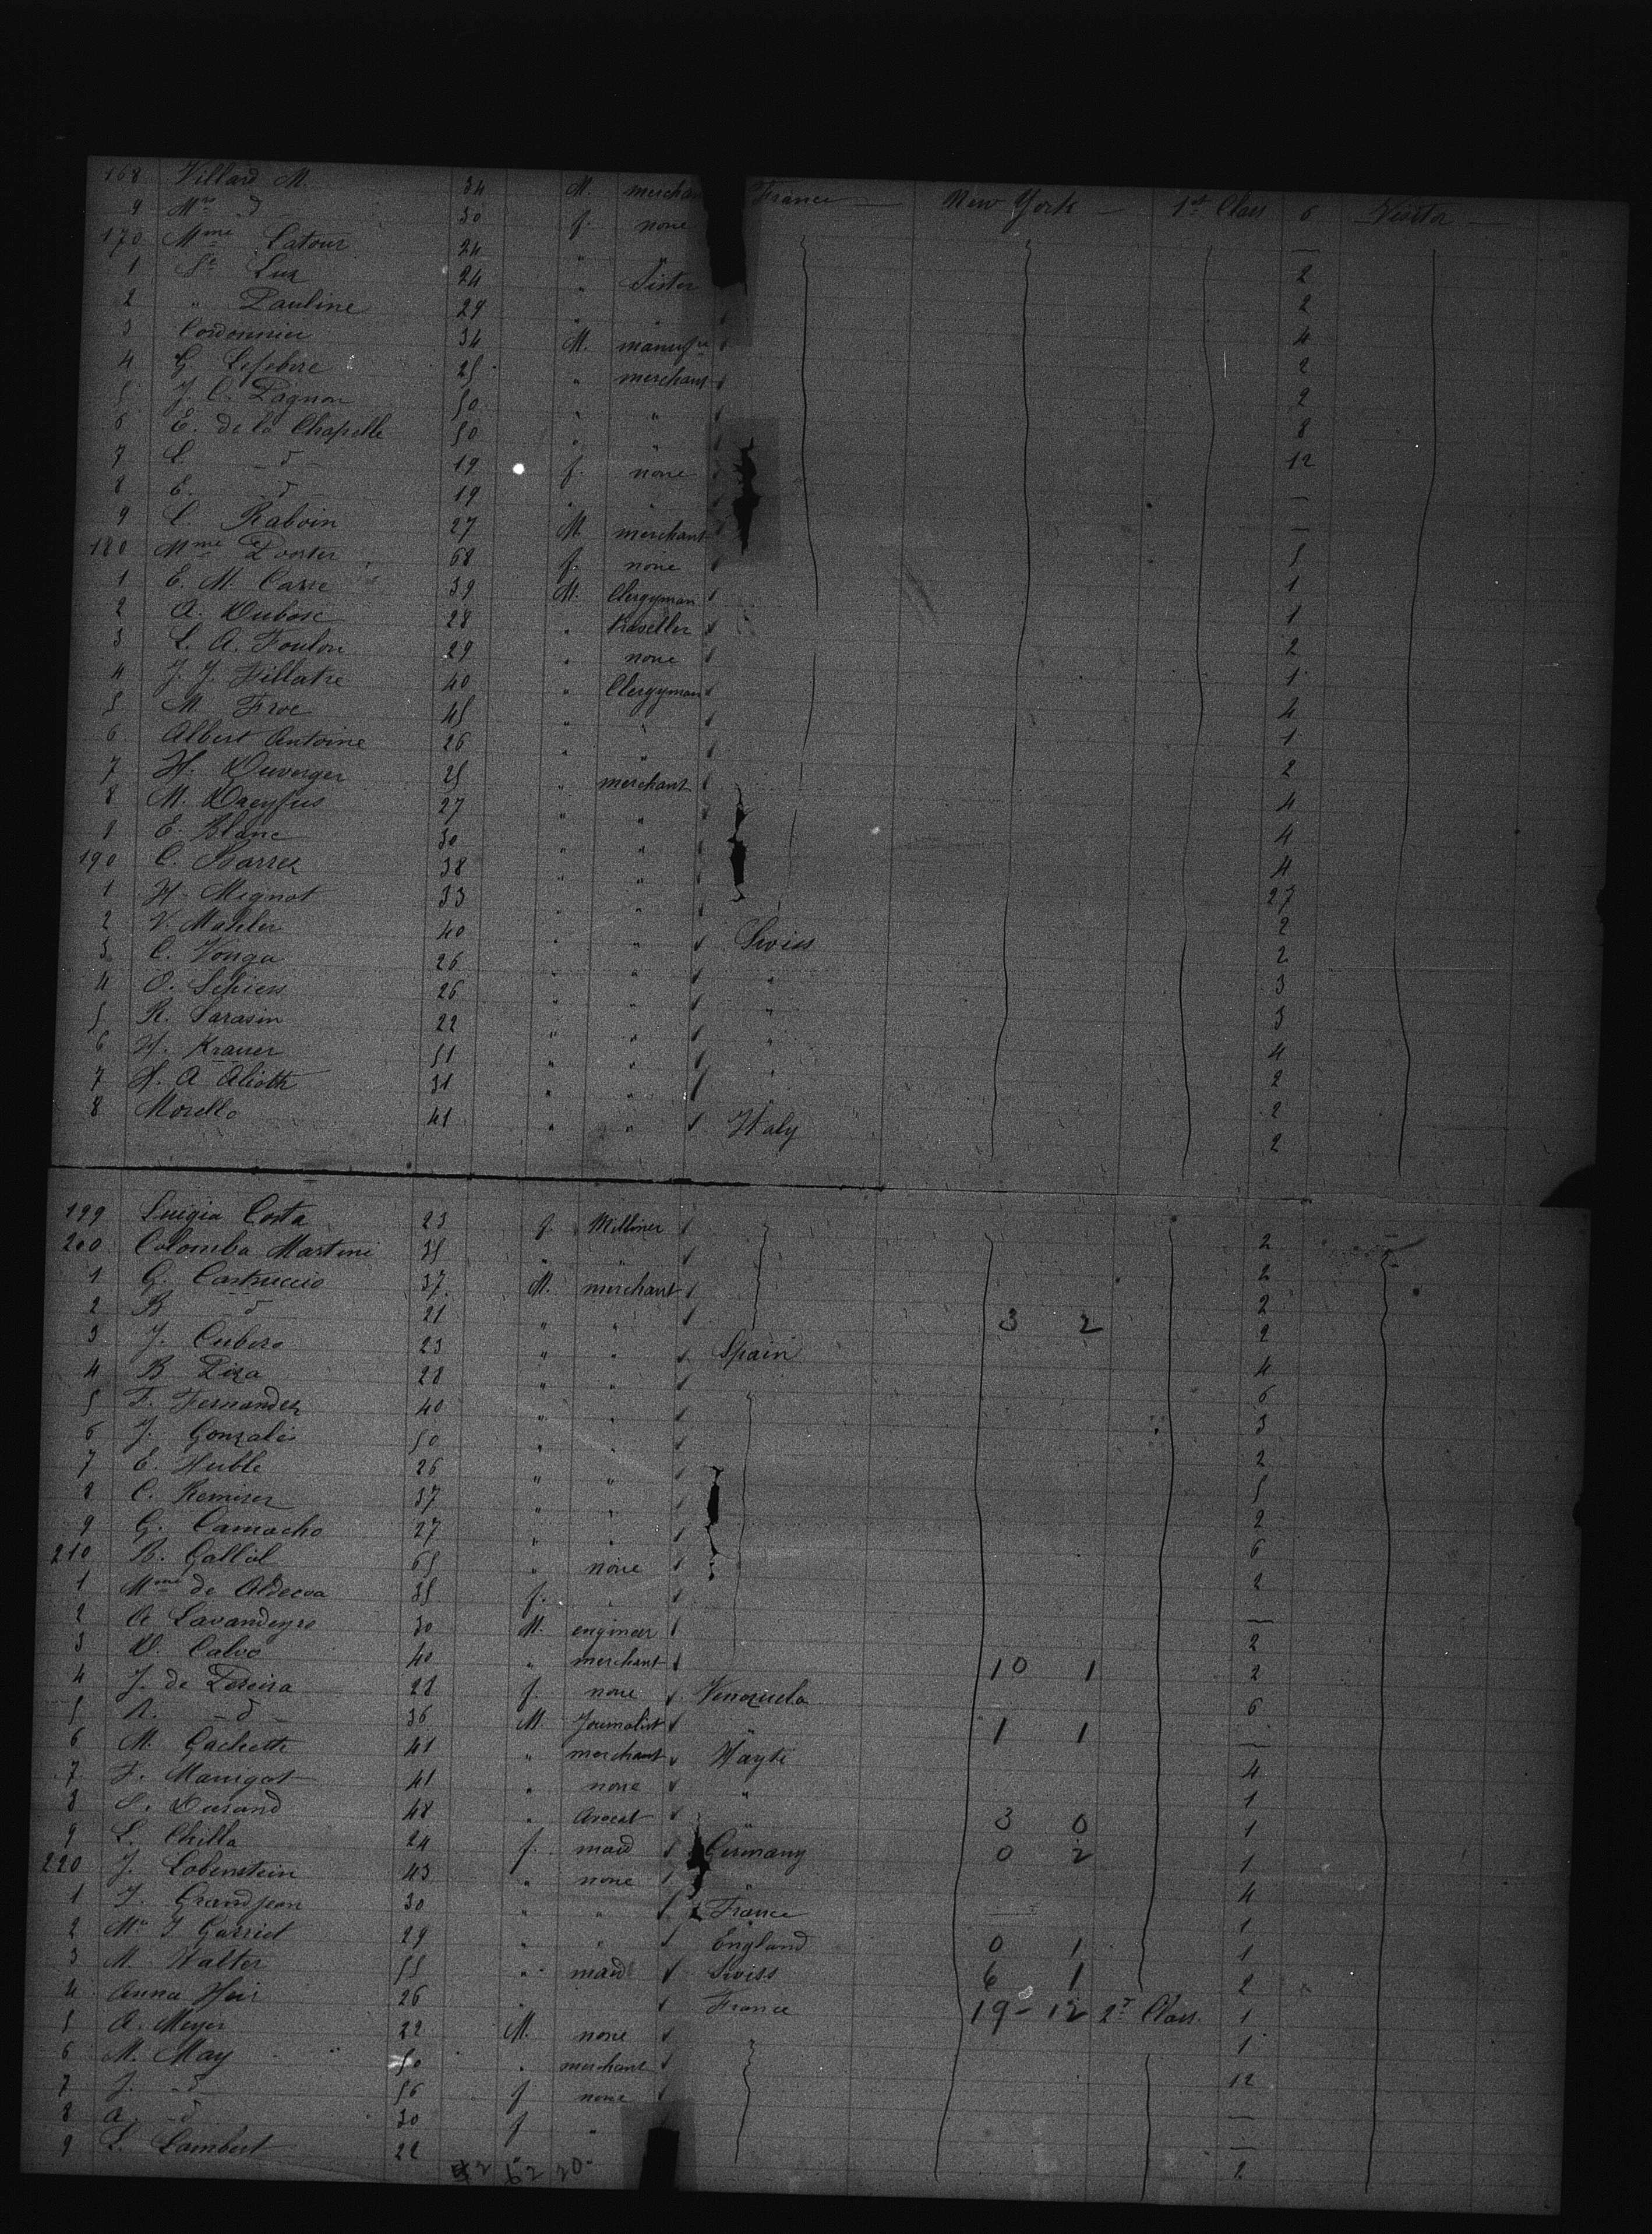 168 Villard M. 34 M. mercha France New York 1st Class 6 Visita
9 Mrs d 30 f. none
170 Mme Latour 24 " " —
1 Sr Luz 24 " Sister 2
2 " Pauline 29 " " 2
3 Cordonnier 34 M. manufr 4
4 G Lefebvre 25 " merchant 2
5 J. C. Pagnon 50 " " 2
6 E. de la Chapelle 50 " " 8
7 L. d 19 f. none 12
8 E. d 19 " " —
9 L. Raboin 27 M. merchant —
180 Mme Dooster 68 f. none 5
1 E. M. Carre 39 M. Clergyman 1
2 A. Dubosc 28 " traveller 1
3 L. A. Foulon 29 " none 2
4 J. J. Fillatre 40 " Clergyman 1
5 M. Froc 45 " " 4
6 Albert Antoine 26 " " 1
7 H. Duverger 25 " merchant 2
8 M. Dreyfus 27 " " 4
9 E. Blanc 30 " " 4
190 C. Barrez 38 " " 4
1 H. Mignot 33 " " 27
2 V. Mahler 40 " " Swiss 2
3 C. Vouga 26 " " " 2
4 O. 26 " " " 3
5 R. Sarasin 22 " " " 3
6 H. Krauer 51 " " " 4
7 H. A Alioth 31 " " " 2
8 Morello 41 " " Italy 2
2
199 Luigia Costa 23 f. Milliner 2
200 Colomba Martini 35 " " 2
1 G. Castruccio 37 M. merchant 2
2 B d 21 " " 3 2 2
3 J. Cubero 23 " " Spain 4
4 B Piza 28 " " 6
5 F. Fernandez 40 " " 3
6 J. Gonzales 50 " " 2
7 E. Huble 26 " " 5
8 C. Remirez 37 " " 2
9 G. Camacho 27 " " 6
210 B. Gallol 65 " none 2
1 Mme de Aldecoa 35 f. " —
2 A Lavandeyro 30 M. engineer 2
3 D. Calvo 40 " merchant 10 1 2
4 J. de Pereira 28 f. none Venezuela 6
5 N. d 36 M. Journalist " 1 1 —
6 M. Gachette 41 " merchant Hayti 4
7 F. Manigat 41 " none " 1
8 S. Durand 48 " Avocat " 3 0 1
9 L. Chilla 24 f. maid Germany 0 2 1
220 J. Lobenstein 43 " none " 4
1 J. Grandjean 30 " " France 1
2 29 " " England 0 1 1
3 M. Walter 55 " maid Swiss 6 1 2
4 Anna 26 " France 19 - 12 2d Class 1
5 A. Meyer 22 M. none 1
6 M. May 50 " merchant 12
7 J. d 56 f none —
8 A. d 30 f " —
9 L. Lambert 22 " 2